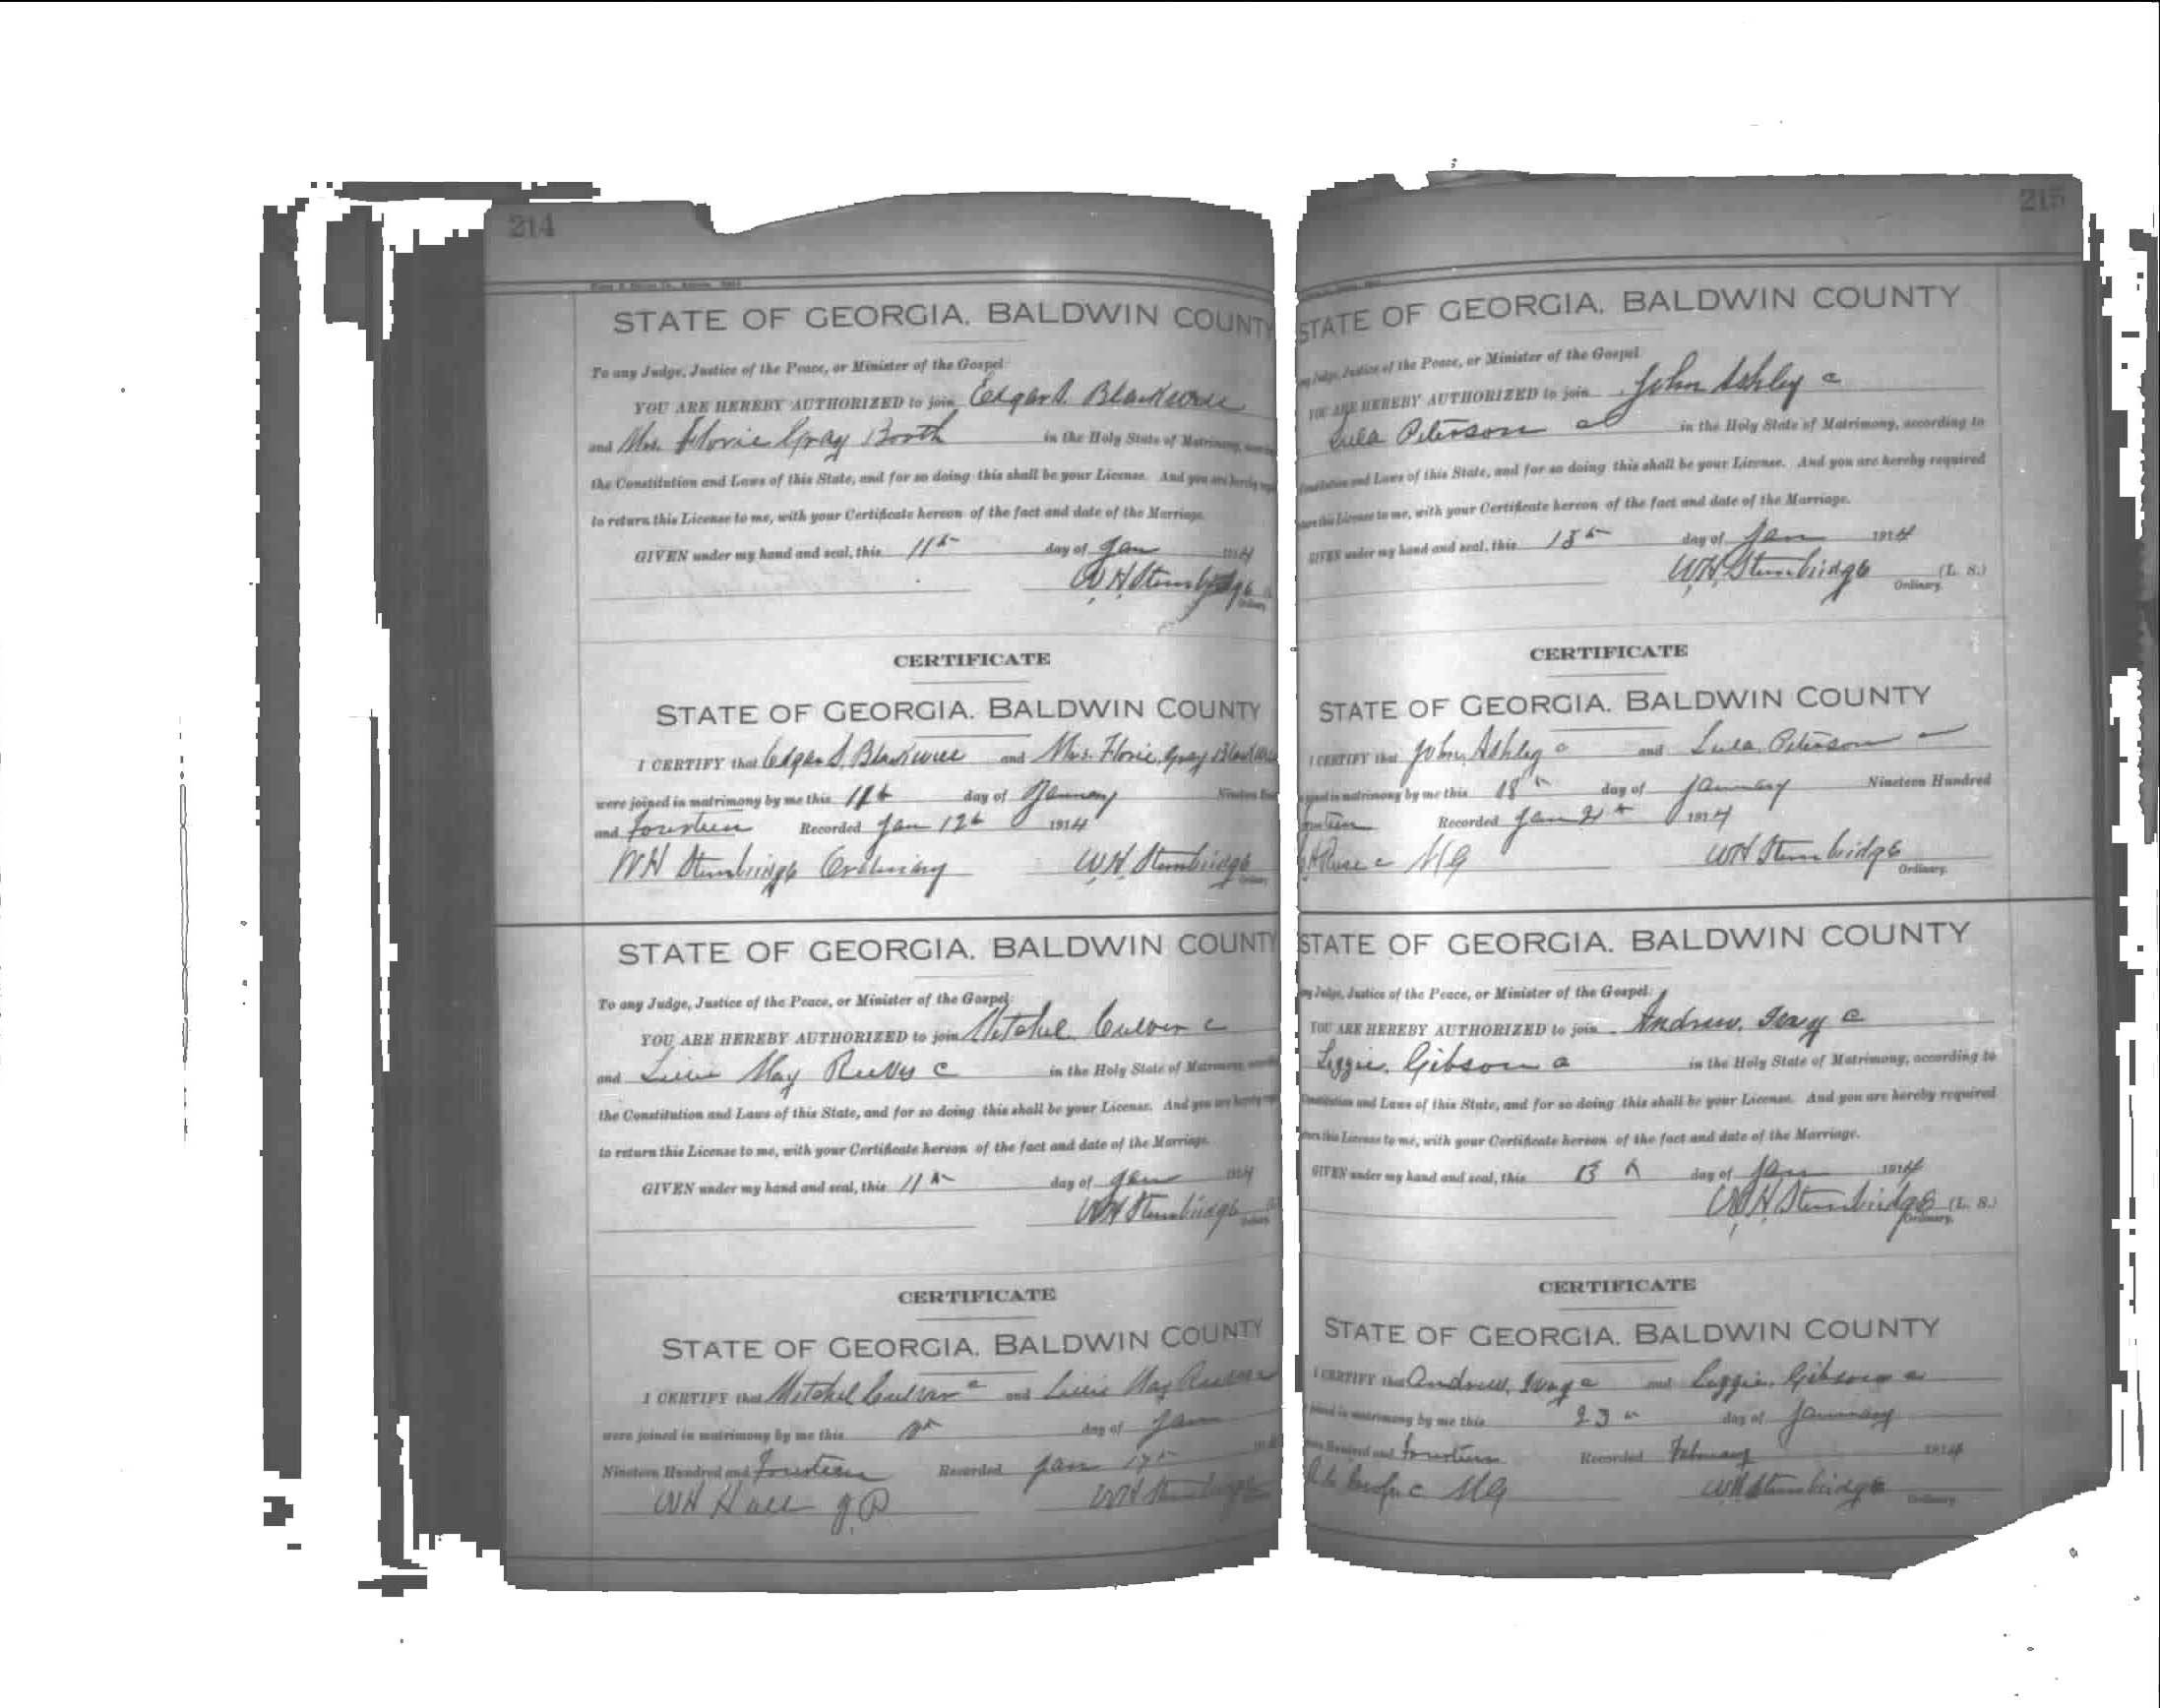 214
STATE OF GEORGIA, BALDWIN COUNTY
To any Judge, Justice of the Peace, or Minister of the Gospel:
YOU ARE HEREBY AUTHORIZED to join Edgar S.
and Mrs. Florie Gray Booth in the Holy State of Matrimony,
the Constitution and Laws of this State, and for so doing this shall be your License. And you are hereby
to return this License to me, with your Certificate hereon of the fact and date of the Marriage.
GIVEN under my hand and seal, this 11th day of Jan 1914
W. H. Stembridge
Ordinary
CERTIFICATE
STATE OF GEORGIA, BALDWIN COUNTY
I CERTIFY that Edgar S. and Mrs. Florie Gray
were joined in matrimony by me this 11th day of January Nineteen
and fourteen Recorded Jan 12th 1914
W H Stembridge Ordinary W. H. Stembridge
STATE OF GEORGIA, BALDWIN COUNTY
To any Judge, Justice of the Peace, or Minister of the Gospel:
YOU ARE HEREBY AUTHORIZED to join Mitchel Culver c
and Lillie May Reeves c in the Holy State of Matrimony,
the Constitution and Laws of this State, and for so doing this shall be your License. And you are hereby
to return this License to me, with your Certificate hereon of the fact and date of the Marriage.
GIVEN under my hand and seal, this 11th day of Jan 1914
W H Stembridge
CERTIFICATE
STATE OF GEORGIA, BALDWIN COUNTY
I CERTIFY that Mitchel Culver c and Lillie May
were joined in matrimony by me this day of Jan
Nineteen Hundred and Fourteen Recorded Jan
W H Hall J. P. W H Stembridge
215
STATE OF GEORGIA, BALDWIN COUNTY
Judge, Justice of the Peace, or Minister of the Gospel:
YOU ARE HEREBY AUTHORIZED to join John Ashley c
Lula Peterson c in the Holy State of Matrimony, according to
Constitution and Laws of this State, and for so doing this shall be your License. And you are hereby required
this License to me, with your Certificate hereon of the fact and date of the Marriage.
GIVEN under my hand and seal, this day of Jan 1914
W. H. Stembridge (L. S.)
Ordinary.
CERTIFICATE
STATE OF GEORGIA, BALDWIN COUNTY
I CERTIFY that John Ashley c and Lula Peterson
in matrimony by me this 18th day of January Nineteen Hundred
Recorded Jan 1914
M G W H Stembridge
Ordinary.
STATE OF GEORGIA, BALDWIN COUNTY
Judge, Justice of the Peace, or Minister of the Gospel:
YOU ARE HEREBY AUTHORIZED to join Andrew c
Lizzie Gibson c in the Holy State of Matrimony, according to
Constitution and Laws of this State, and for so doing this shall be your License. And you are hereby required
this License to me, with your Certificate hereon of the fact and date of the Marriage.
GIVEN under my hand and seal, this day of Jan 1914
W. H. Stembridge (L. S.)
Ordinary.
CERTIFICATE
STATE OF GEORGIA, BALDWIN COUNTY
I CERTIFY that Andrew c and Lizzie Gibson c
joined in matrimony by me this 23 day of January
Hundred and fourteen Recorded February 1914
c M G W H Stembridge
Ordinary